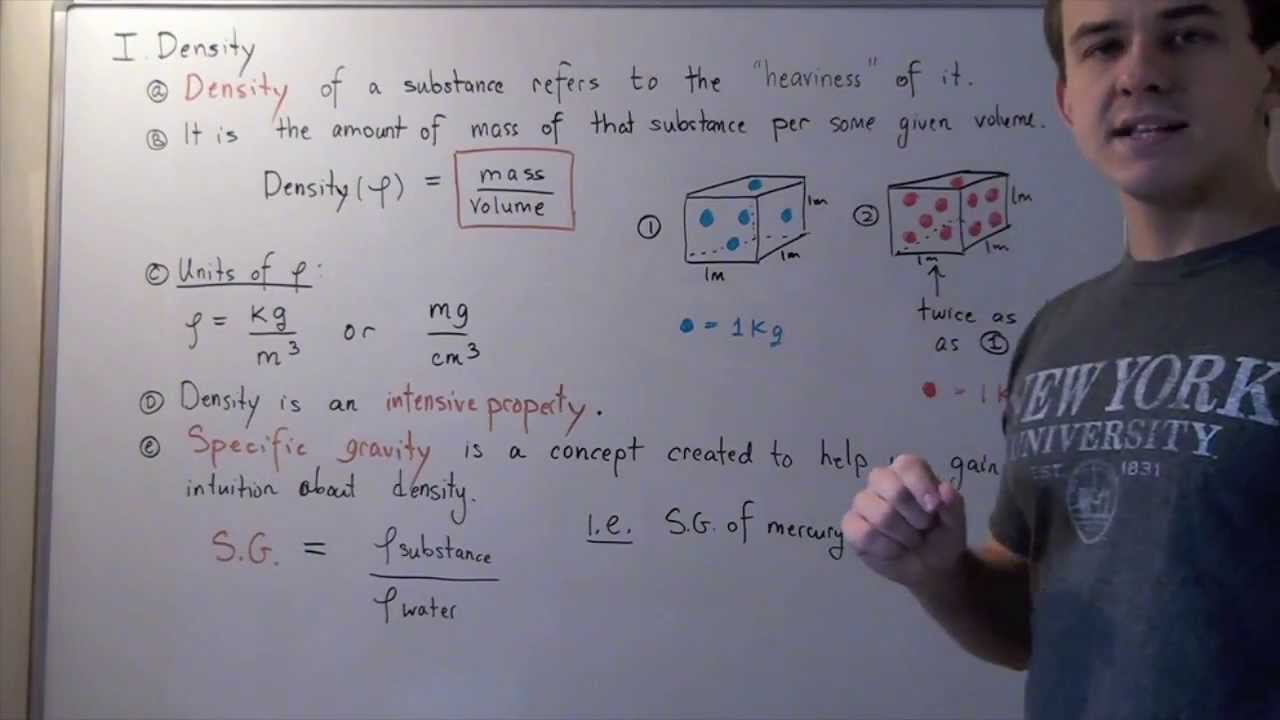 I. Density
ⓐ Density of a substance refers to the "heaviness" of it.
Ⓑ It is the amount of mass of that substance per some given volume.
Density (ρ) = mass / volume
① 1m 1m 1m
② 1m 1m 1m
= 1 Kg
twice as
as ①
= 1 K
Ⓒ Units of ρ:
ρ = kg / m³ or mg / cm³
Ⓓ Density is an intensive property.
ⓔ Specific gravity is a concept created to help gain
intuition about density.
S.G. = ρ substance / ρ water
i.e. S.G. of mercury
NEW YORK
UNIVERSITY
EST. 1831